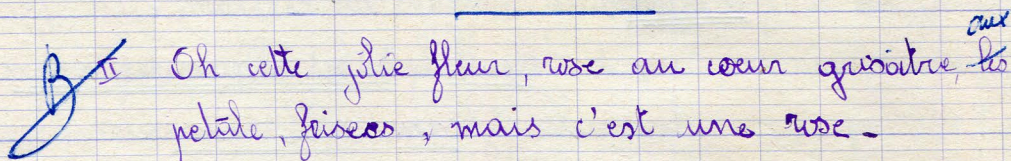 aux
B II Oh cette jolie fleur, rose au coeur grisâtre, les
petale, frisees, mais c'est une rose.